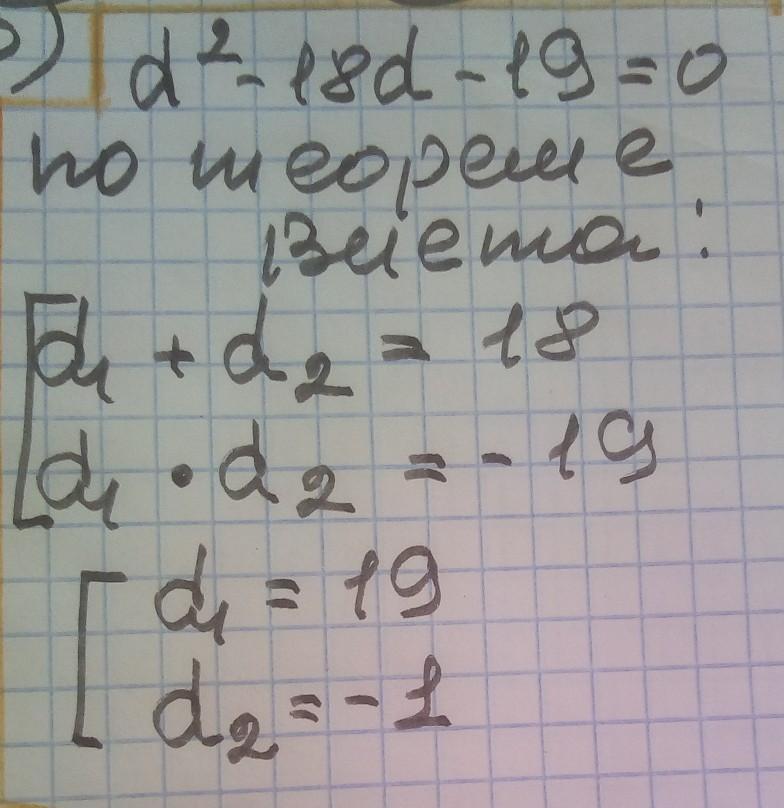 ) d² - 18d - 19 = 0
по теореме
Виета:
[d₁ + d₂ = 18
d₁ • d₂ = - 19
[d₁ = 19
d₂ = - 1